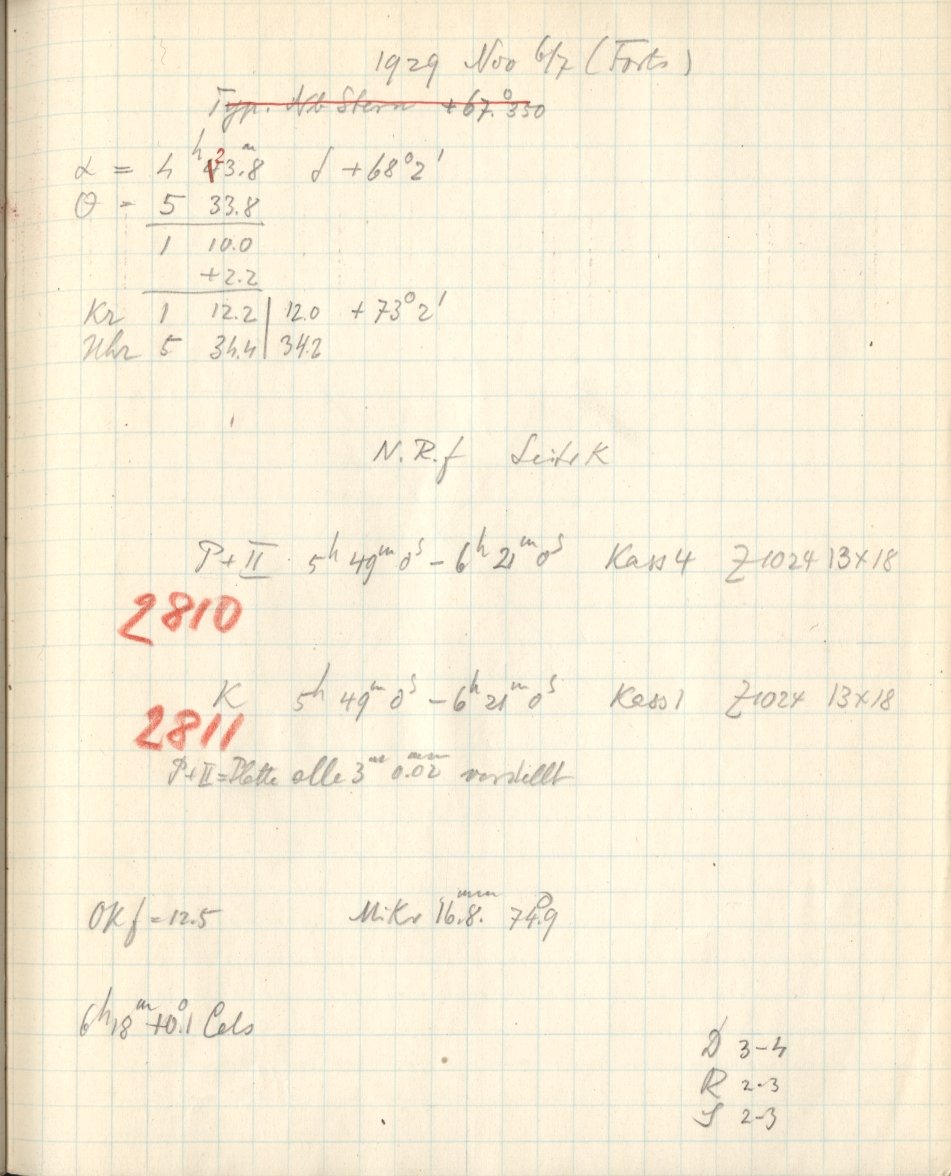 1929 Nov 6/7 (Forts)
Typ. Nb Stern +67.°350
α = 4ʰ 23.8ᵐ δ +68°2'
θ = 5 33.8
1 10.0
+2.2
Kr 1 12.2 | 12.0 +73°2'
Uhr 5 34.4 | 34.2
N.R.f Seite K
P+II 5ʰ 49ᵐ 0ˢ – 6ʰ 21ᵐ 0ˢ Kass 4 Z1024 13×18
2810
K 5ʰ 49ᵐ 0ˢ – 6ʰ 21ᵐ 0ˢ Kass 1 Z1024 13×18
2811
P+II=Platte alle 3ᵐ 0.02ᵐᵐ verstellt
OKf = 12.5 Mikr 16.8.ᵐᵐ 74.9
6ʰ 18ᵐ +0.°1 Cels
D 3-4
R 2-3
S 2-3